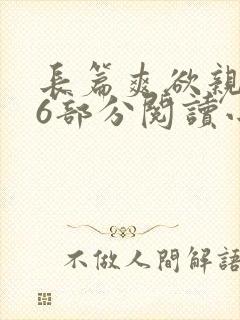 長篇爽欲親
6部分閱讀
不做人間解語